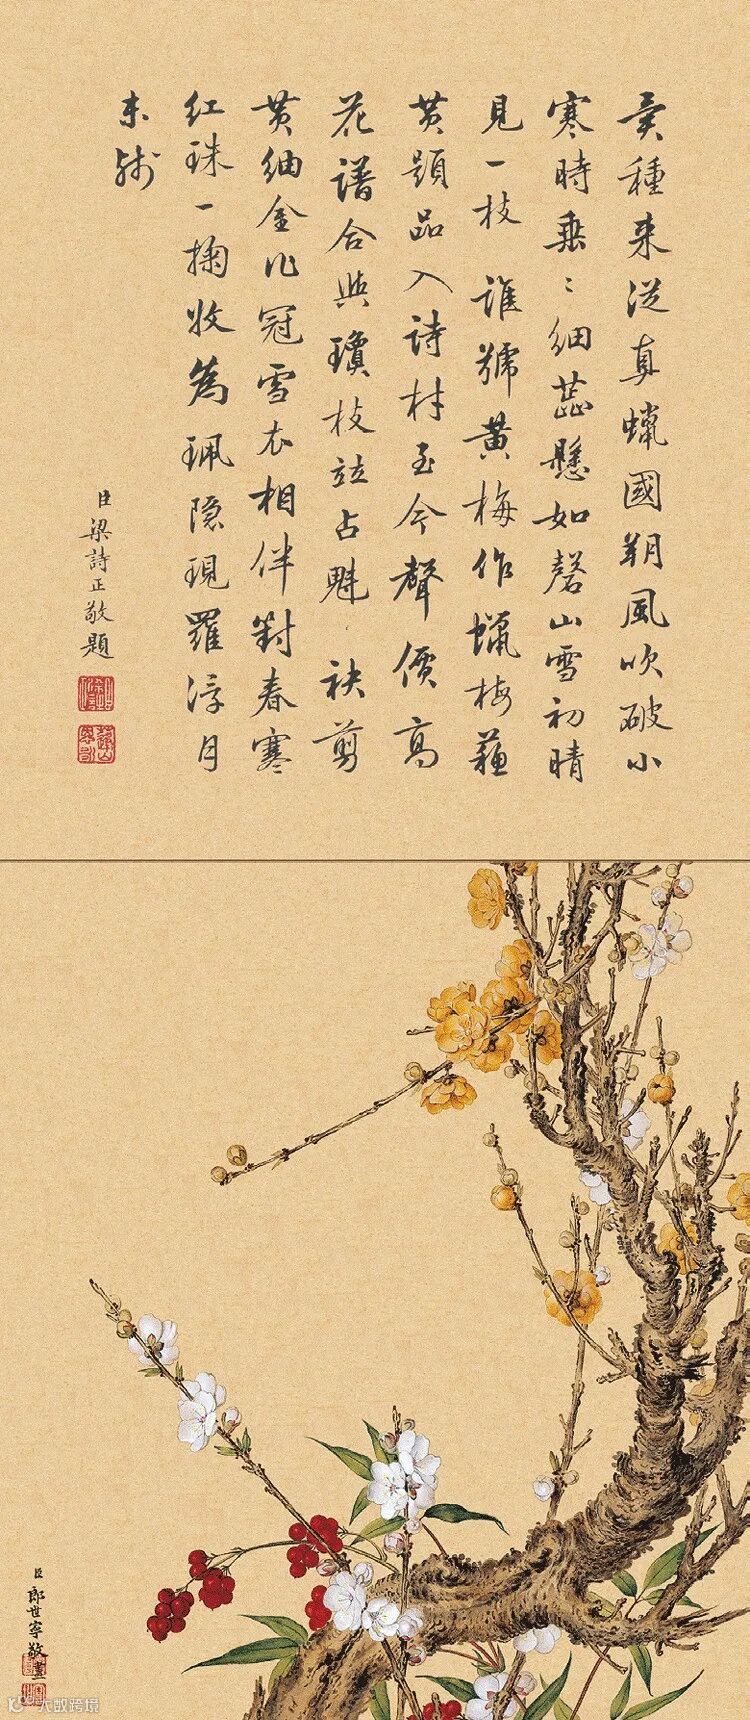 異種来從真蠟國朔風吹破小
寒時垂〻細蕊懸如磬山雪初晴
見一枝 誰號黄梅作蠟梅蘓
黄題品入詩材至今聲價高
花譜合與瓊枝竝占魁 袂剪
黄紬金作冠雪衣相伴對春寒
紅珠一掬收為珮隐現羅浮月
未殘
臣梁詩正敬題
臣郎世寧敬畫
大数跨境